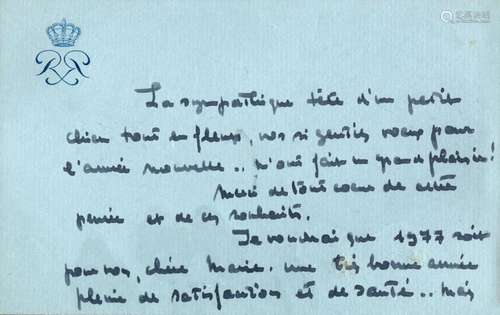 La sympathique tête d'un petit
chien tout en fleurs, vos si gentils voeux pour
l'année nouvelle.. m'ont fait un grand plaisir!
Merci de tout coeur de cette
pensée et de ces souhaits.
Je voudrais que 1977 soit
pour vos, chère Marie. une très bonne année
pleine de satisfactions et de santé.. mais